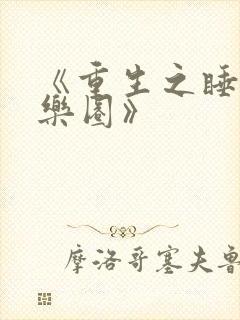 《重生之睡
樂園》
摩洛哥塞夫魯